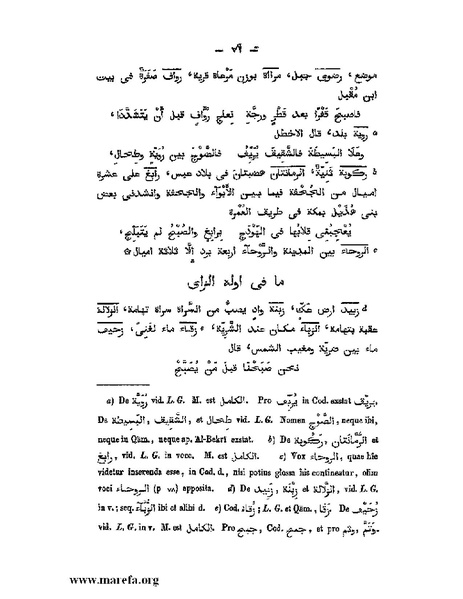 — ٧٩ —
موضع، رضوى جبل، مرآاة بوزن مرعاة قرية، رواف صفرة فى بيت
ابن مقبل
فاصبح قفرا بعد قطر ورجة تعلى رواف قبل أن يتشددا،
رؤية بلد، قال الاخطل
وعلا البسيطة فالشقيق بريق فالصوج بين رؤية وطحال،
ركوبة ثنية، الرمانتان هضبتان فى بلاد عبس، رابغ على عشرة
اميال من الجحفة فيما بين الأبواء والجحفة وانشدنى بعض
بنى هذيل بمكة فى طريف العمرة
برابغ والصبح لم يتبلج،
الروحاء بين المدينة والروحاء اربعة برد الا ثلاثة اميال
ما فى اوله الزاى
زبيد ارض عك، زينة واد يصب من السراة سراة تهامة، الزلالة
عقبة بتهامة، الزباء مكان عند الشربة، زقاء ماء لغنى، زحيف
ماء بين ضرية ومغيب الشمس، قال
نحن صبحنا قبل من يصبح
a) De رؤية vid. L. G. M. est الكامل. Pro بريق in Cod. exstat بريف.
De البسيطة, الشقيق, et طحال vid. L. G. Nomen الصوج, neque ibi,
neque in Qâm., neque ap. Al-Bekri exstat. b) De ركوبة, الرمانتان et
رابغ, vid. L. G. in voce. M. est الكامل. c) Vox الروحاء, quae hic
videtur inserenda esse, in Cod. d., nisi potius glossa hîs contineatur, olim
voci الروحاء (p ٧٨) apposita. d) De زبيد, زينة et الزلالة, vid. L. G.
in v.; seq. الزباء ibi et alibi d. e) Cod. زقاء; L. G. et Qâm. زقا. De زحيف
vid. L. G. in v. M. est الكامل. Pro جميع, Cod. جمنع, et pro ونم, ونتم.
www.marefa.org